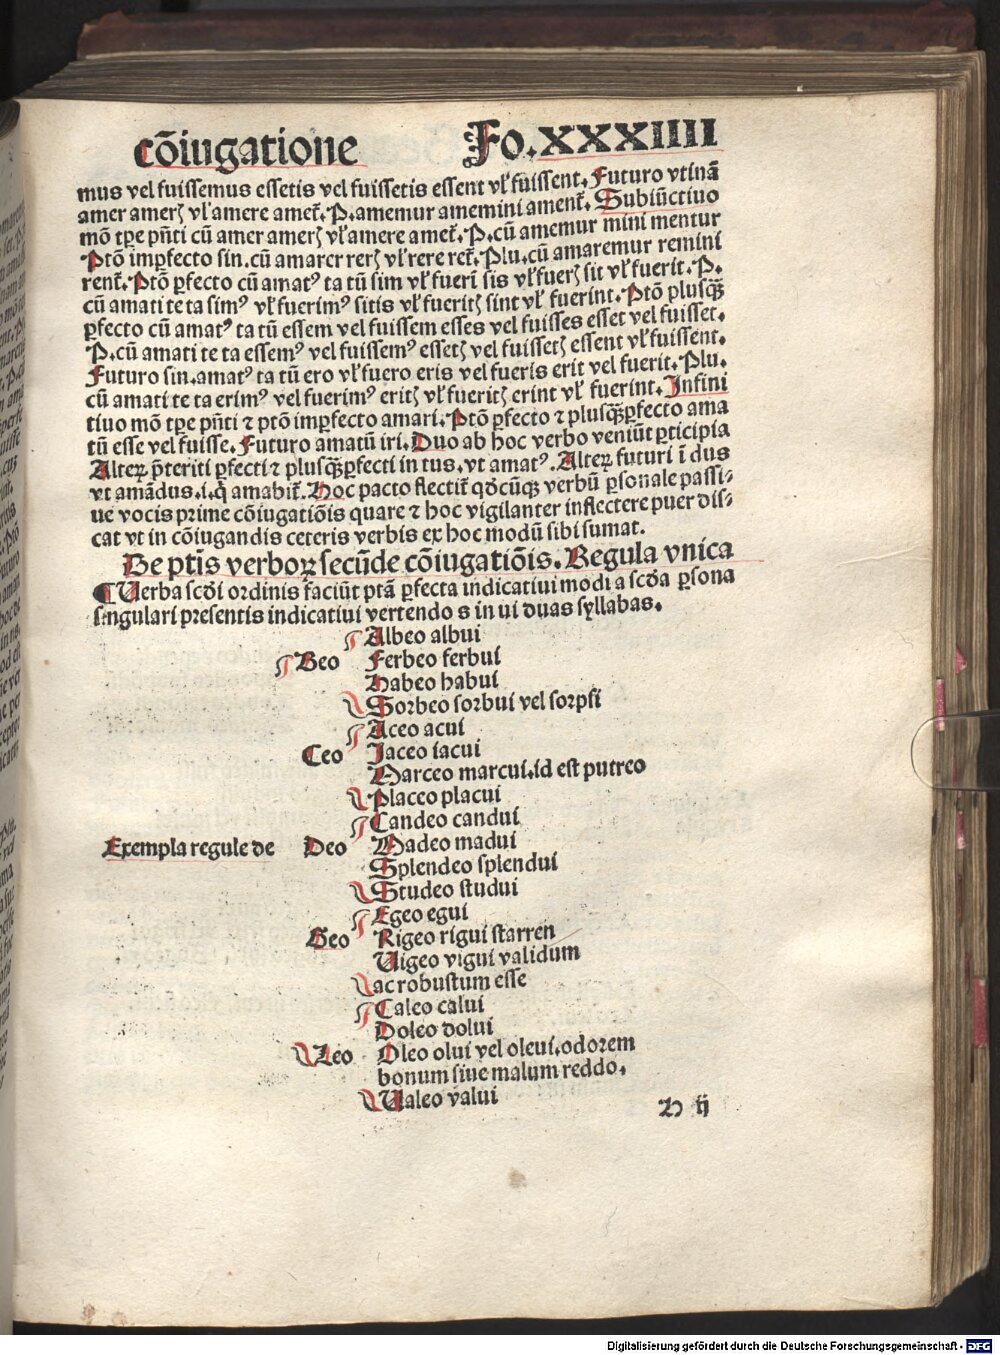 cōiugatione Fo.XXXIIII
mus vel fuissemus essetis vel fuissetis essent vl' fuissent. Futuro vtinā
amer amerꝫ vl' amere ameť. P. amemur amemini amenť. Subiūctiuo
mō tꝑe pñti cū amer amerꝫ vl' amere ameť. P. cū amemur mini mentur
Ptō imꝑfecto sin. cū amarer rerꝫ vl' rere reť. Plu. cū amaremur remini
renť. Ptō ꝑfecto cū amatꝰ ta tū sim vl' fueri sis vl' fuerꝫ sit vl' fuerit. P.
cū amati te ta simꝰ vl' fuerimꝰ sitis vl' fueritꝫ sint vl' fuerint. Ptō plusq̃ꝫ
ꝑfecto cū amatꝰ ta tū essem vel fuissem esses vel fuisses esset vel fuisset.
P. cū amati te ta essemꝰ vel fuissemꝰ essetꝫ vel fuissetꝫ essent vl' fuissent.
Futuro sin. amatꝰ ta tū ero vl' fuero eris vel fueris erit vel fuerit. Plu.
cū amati te ta erimꝰ vel fuerimꝰ eritꝫ vl' fueritꝫ erint vl' fuerint. Infini
tiuo mō tꝑe pñti ⁊ ptō imꝑfecto amari. Ptō ꝑfecto ⁊ plusq̃ꝫꝑfecto ama
tū esse vel fuisse. Futuro amatū iri. Duo ab hoc verbo veniūt ꝑticipia
Alteꝝ p̄teriti ꝑfecti ⁊ plusq̃ꝫꝑfecti in tus. vt amatꝰ. Alteꝝ futuri ī dus
vt amādus. i. q̄ amabiť. Hoc pacto flectiť qd̄cūqꝫ verbū ꝑsonale passi-
ue vocis prime cōiugatiōis quare ⁊ hoc vigilanter inflectere puer dis-
cat vt in cōiugandis ceteris verbis ex hoc modū sibi sumat.
De ptīs verboꝝ secūde cōiugatiōis. Regula vnica
¶ Verba scd̄i ordinis faciūt ptā ꝑfecta indicatiui modi a scd̄a ꝑsona
singulari presentis indicatiui vertendo s in ui duas syllabas.
Albeo albui
Beo Ferbeo ferbui
Habeo habui
Sorbeo sorbui vel sorpsi
Aceo acui
Ceo Jaceo iacui
Marceo marcui.id est putreo
Placeo placui
Candeo candui
Exempla regule de Deo Madeo madui
Splendeo splendui
Studeo studui
Egeo egui
Geo Rigeo rigui starren
Vigeo vigui validum
ac robustum esse
Caleo calui
Doleo dolui
Leo Oleo olui vel oleui.odorem
bonum siue malum reddo.
Valeo valui
ij
Digitalisierung gefördert durch die Deutsche Forschungsgemeinschaft - DFG